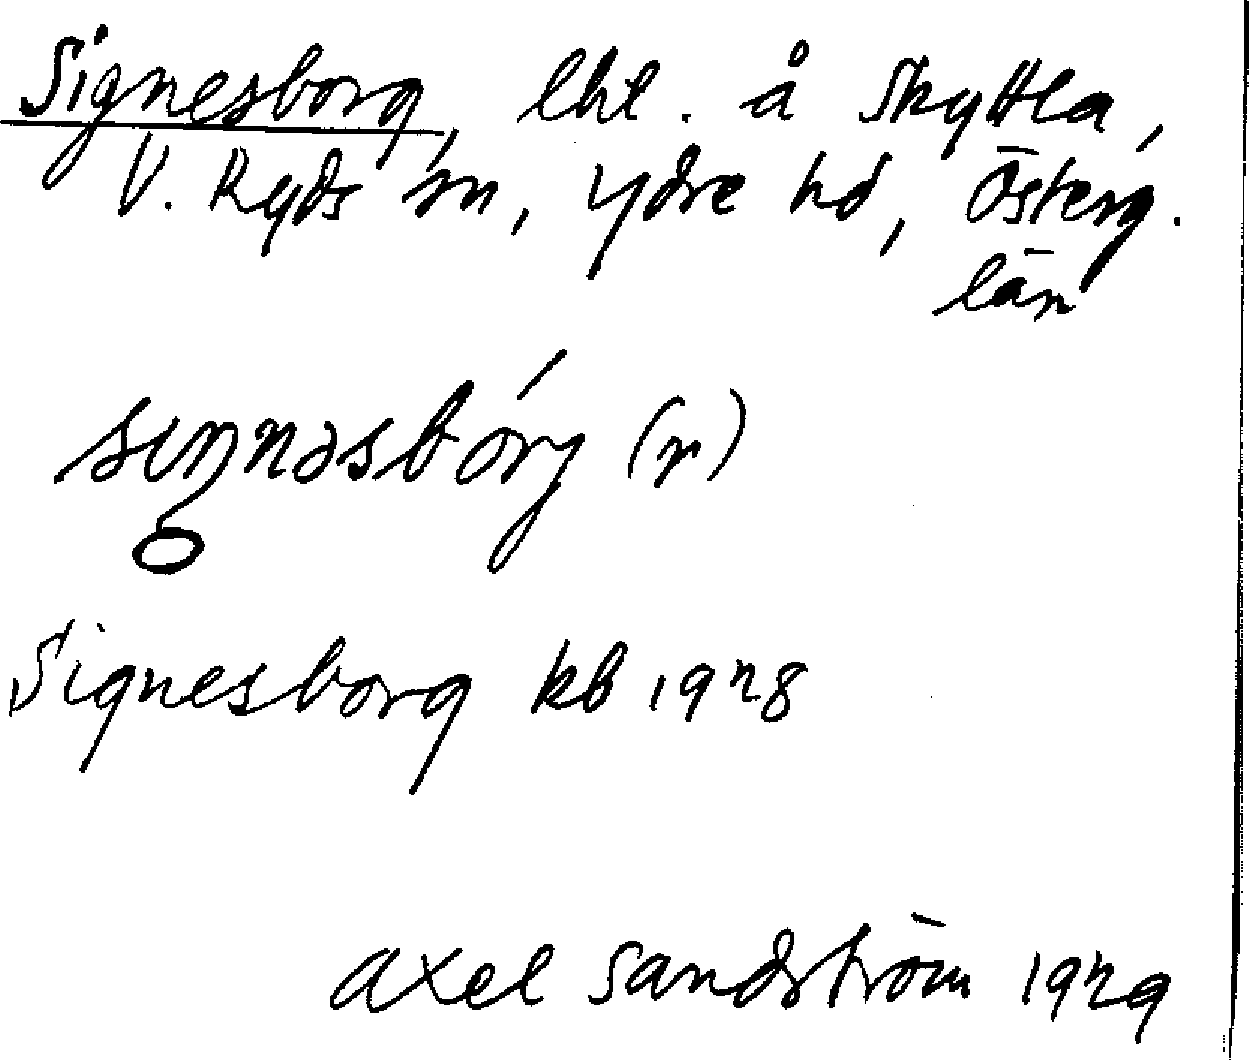 Signesborg, lht. å Skyttla,
V. Ryds sn, Ydre hd, Österg.
län
sıŋnəsbórj (r)
Signesborg kb 1928
Axel Sandström 1929